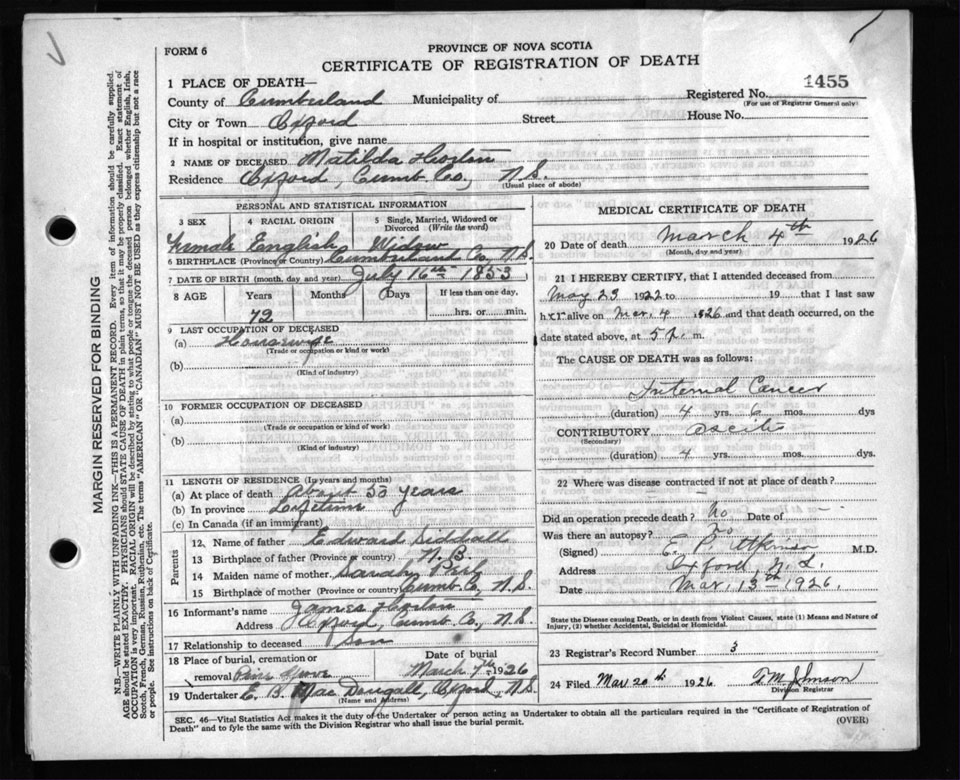 FORM 6
PROVINCE OF NOVA SCOTIA
CERTIFICATE OF REGISTRATION OF DEATH
1 PLACE OF DEATH—
1455
Registered No.
(For use of Registrar General only)
County of Cumberland Municipality of
City or Town Oxford Street House No.
If in hospital or institution, give name
2 NAME OF DECEASED Matilda
Residence Oxford, Cumb. Co., N.S.
(Usual place of abode)
PERSONAL AND STATISTICAL INFORMATION
3 SEX 4 RACIAL ORIGIN 5 Single, Married, Widowed or Divorced (Write the word)
Female English Widow
6 BIRTHPLACE (Province or Country) Cumberland Co, N.S.
7 DATE OF BIRTH (month, day and year) July 16th 1853
8 AGE Years Months Days If less than one day,
72 hrs. or min.
9 LAST OCCUPATION OF DECEASED
(a) Housewife
(Trade or occupation or kind or work)
(b)
(Kind of industry)
10 FORMER OCCUPATION OF DECEASED
(a)
(Trade or occupation or kind of work)
(b)
(Kind of industry)
11 LENGTH OF RESIDENCE (In years and months)
(a) At place of death About 53 years
(b) In province Lifetime
(c) In Canada (if an immigrant)
Parents
12 Name of father Edward Siddall
13 Birthplace of father (Province or country) N.B.
14 Maiden name of mother
15 Birthplace of mother (Province or country) Cumb. Co., N.S.
16 Informant's name James
Address Oxford, Cumb. Co., N.S.
17 Relationship to deceased Son
18 Place of burial, cremation or removal Pine Grove
Date of burial
March 7th 1926
19 Undertaker E. B. MacDougall, Oxford, N.S.
(Name and Address)
MEDICAL CERTIFICATE OF DEATH
20 Date of death March 4th 1926
(Month, day and year)
21 I HEREBY CERTIFY, that I attended deceased from
May 23 1922 to 19 that I last saw
her alive on Mar. 4 1926 and that death occurred, on the
date stated above, at 5 p. m.
The CAUSE OF DEATH was as follows:
Internal Cancer
(duration) 4 yrs. 6 mos. dys
CONTRIBUTORY
(Secondary)
(duration) 4 yrs. mos. dys.
22 Where was disease contracted if not at place of death?
Did an operation precede death? No Date of -
Was there an autopsy? No
(Signed) E. P. Atkinson M.D.
Address Oxford, N.S.
Date Mar. 13th 1926
State the Disease causing Death, or in death from Violent Causes, state (1) Means and Nature of
Injury, (2) whether Accidental, Suicidal or Homicidal.
23 Registrar's Record Number 3
24 Filed Mar 20th 1926 Johnson
Division Registrar
SEC. 46—Vital Statistics Act makes it the duty of the Undertaker or person acting as Undertaker to obtain all the particulars required in the "Certificate of Registration of
Death" and to fyle the same with the Division Registrar who shall issue the burial permit.
(OVER)
MARGIN RESERVED FOR BINDING
N.B.—WRITE PLAINLY WITH UNFADING INK—THIS IS A PERMANENT RECORD. Every item of information should be carefully supplied.
AGE should be stated EXACTLY. PHYSICIANS should STATE CAUSE OF DEATH in plain terms, so that it may be properly classified. Exact statement of
OCCUPATION is very important. RACIAL ORIGIN will be described by stating to what people or tongue the deceased person belonged whether English, Irish,
Scotch, French, German, Russian, Ruthenian, etc. The terms "AMERICAN" OR "CANADIAN" MUST NOT BE USED as they express citizenship but not a race
or people. See instructions on back of Certificate.